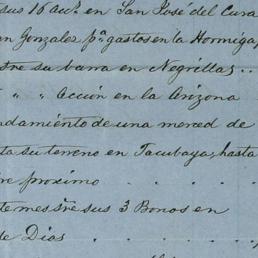 sus 16 acs. en San José del Cura
n Gonzales pa. gastos en la Hormiga
tre su barra en Negrillas; ..
" " Acción en la Arizona
ndamiento de una merced de
ta su terreno en Tacubaya, hasta
re proximo . . . .
te mes sre sus 3 Bonos en
de Dios . . . . .